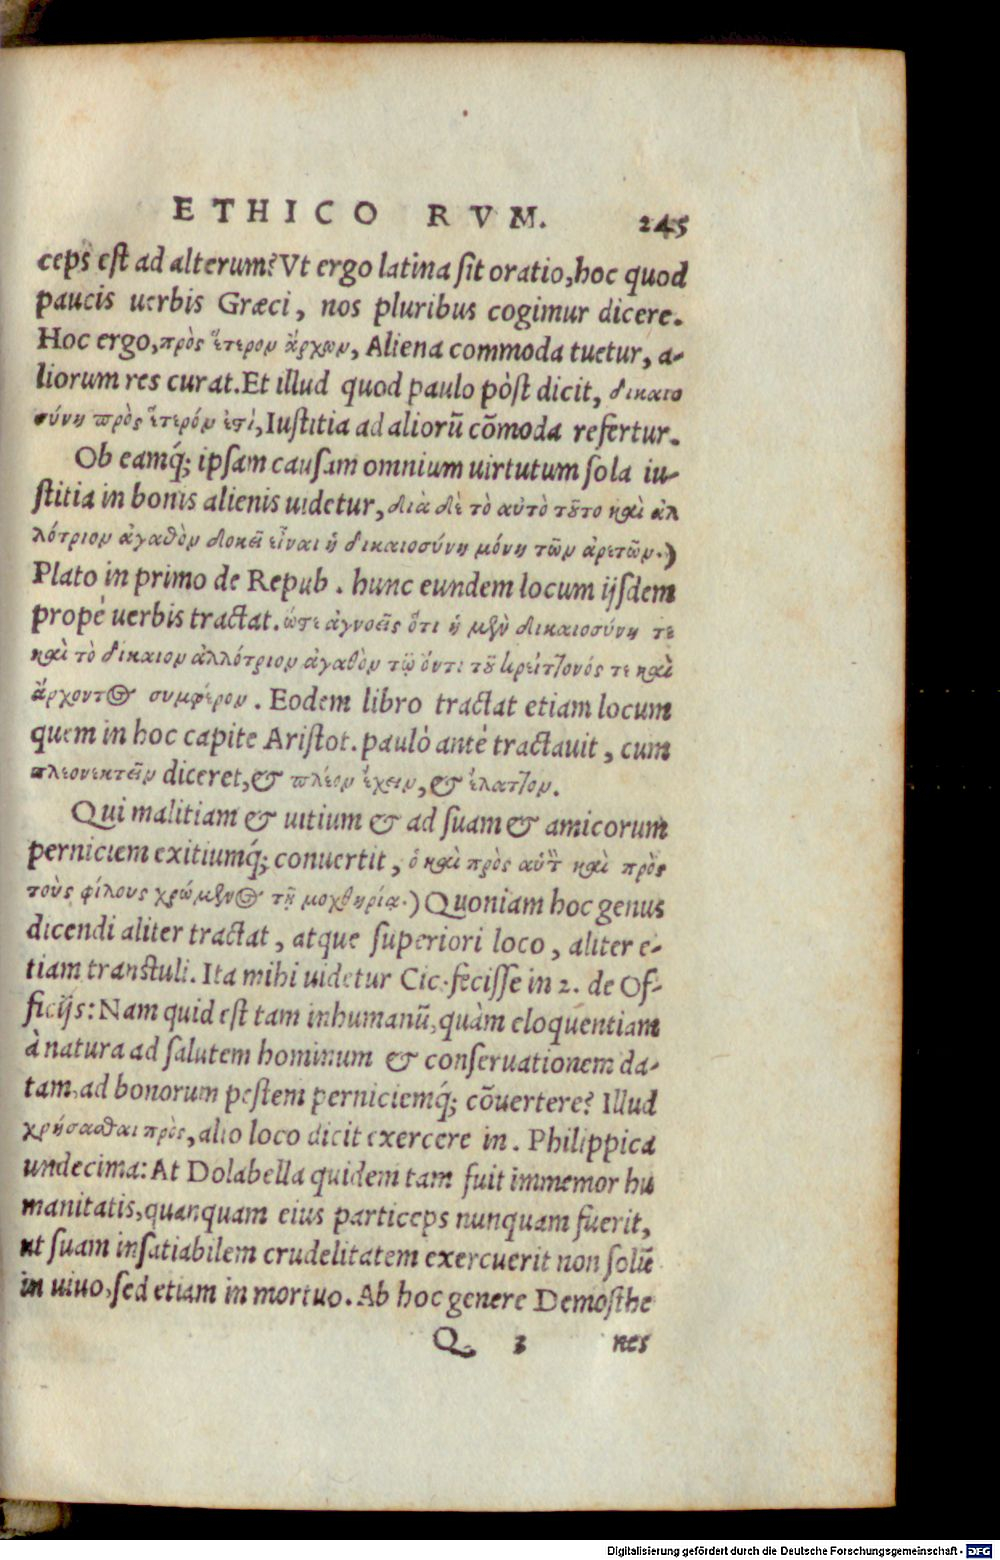 ETHICO RVM. 245
ceps est ad alterum? Vt ergo latina sit oratio, hoc quod
paucis uerbis Græci, nos pluribus cogimur dicere.
Hoc ergo, πρὸς ἕτερον ἄρχων, Aliena commoda tuetur, a-
liorum res curat. Et illud quod paulo pòst dicit, δικαιο
σύνη πρὸς ἕτερόν ἐστι, Iustitia ad aliorũ cõmoda refertur.
Ob eamq́; ipsam causam omnium uirtutum sola iu-
stitia in bonis alienis uidetur, διὰ δὲ τὸ αὐτὸ τοῦτο καὶ ἀλ
λότριον ἀγαθὸν δοκεῖ εἶναι ἡ δικαιοσύνη μόνη τῶν ἀρετῶν.)
Plato in primo de Repub. hunc eundem locum ijsdem
propè uerbis tractat. ὥστε ἀγνοεῖς ὅτι ἡ μὲν δικαιοσύνη τε
καὶ τὸ δίκαιον ἀλλότριον ἀγαθὸν τῷ ὄντι τοῦ κρείττονός τε καὶ
ἄρχοντος συμφέρον. Eodem libro tractat etiam locum
quem in hoc capite Aristot. paulò antè tractauit, cum
πλεονεκτεῖν diceret, & πλέον ἔχειν, & ἔλαττον.
Qui malitiam & uitium & ad suam & amicorum
perniciem exitiumq́; conuertit, ὁ καὶ πρὸς αὑτὸν καὶ πρὸς
τοὺς φίλους χρώμενος τῇ μοχθηρίᾳ.) Quoniam hoc genus
dicendi aliter tractat, atque superiori loco, aliter e-
tiam transtuli. Ita mihi uidetur Cic. fecisse in 2. de Of-
ficijs: Nam quid est tam inhumanũ, quàm eloquentiam
à natura ad salutem hominum & conseruationem da-
tam, ad bonorum pestem perniciemq́; cõuertere? Illud
χρήσασθαι πρὸς, alio loco dicit exercere in. Philippica
undecima: At Dolabella quidem tam fuit immemor hu
manitatis, quanquam eius particeps nunquam fuerit,
ut suam insatiabilem crudelitatem exercuerit non solũ
in uiuo, sed etiam in mortuo. Ab hoc genere Demosthe
Q 3 nes
Digitalisierung gefördert durch die Deutsche Forschungsgemeinschaft - DFG